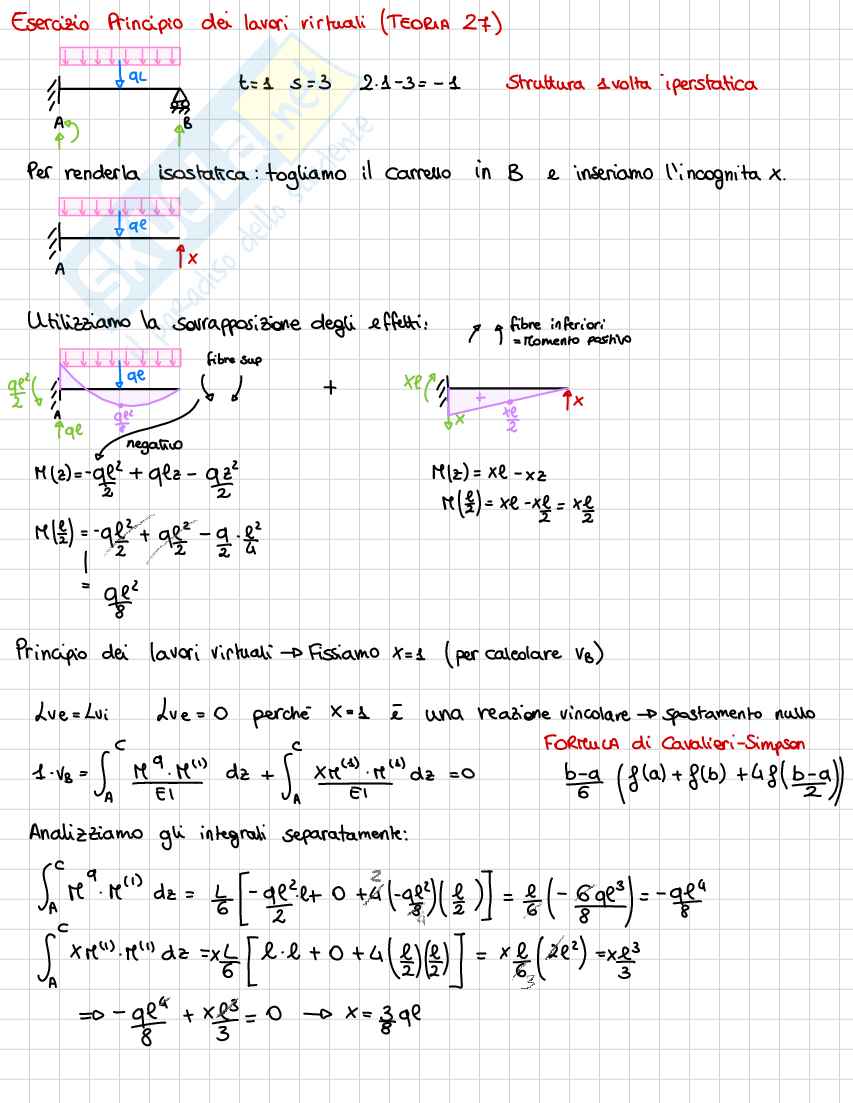 Esercizio Principio dei lavori virtuali (TEORIA 27)
qL
t=1 s=3 2·1-3=-1 Struttura 1 volta iperstatica
A B
Per renderla isostatica: togliamo il carrello in B e inseriamo l'incognita x.
qℓ
A x
Utilizziamo la sovrapposizione degli effetti:
fibre inferiori
= Momento positivo
fibre sup
qℓ²/2 qℓ + xℓ + x
A qℓ²/8 xℓ/2 x
qℓ
negativo
M(z)=-qℓ²/2 + qℓz - qz²/2 M(z) = xℓ - xz
M(ℓ/2) = xℓ - xℓ/2 = xℓ/2
M(ℓ/2) = -qℓ²/2 + qℓ²/2 - q/2 · ℓ²/4
= qℓ²/8
Principio dei lavori virtuali → Fissiamo x=1 (per calcolare v_B)
Lve = Lvi Lve = 0 perché x=1 è una reazione vincolare → spostamento nullo
FORMULA di Cavalieri-Simpson
1·v_B = ∫_A^C M^q·M^(1)/EI dz + ∫_A^C XM^(1)·M^(1)/EI dz = 0 b-a/6 (f(a) + f(b) + 4f(b-a/2))
Analizziamo gli integrali separatamente:
∫_A^C M^q·M^(1) dz = L/6 [-qℓ²/2·ℓ + 0 + 4(-qℓ²/8)(ℓ/2)] = ℓ/6 (-6qℓ³/8) = -qℓ⁴/8
∫_A^C XM^(1)·M^(1) dz = x L/6 [ℓ·ℓ + 0 + 4(ℓ/2)(ℓ/2)] = x ℓ/6 (2ℓ²) = xℓ³/3
⇒ -qℓ⁴/8 + xℓ³/3 = 0 → x = 3/8 qℓ